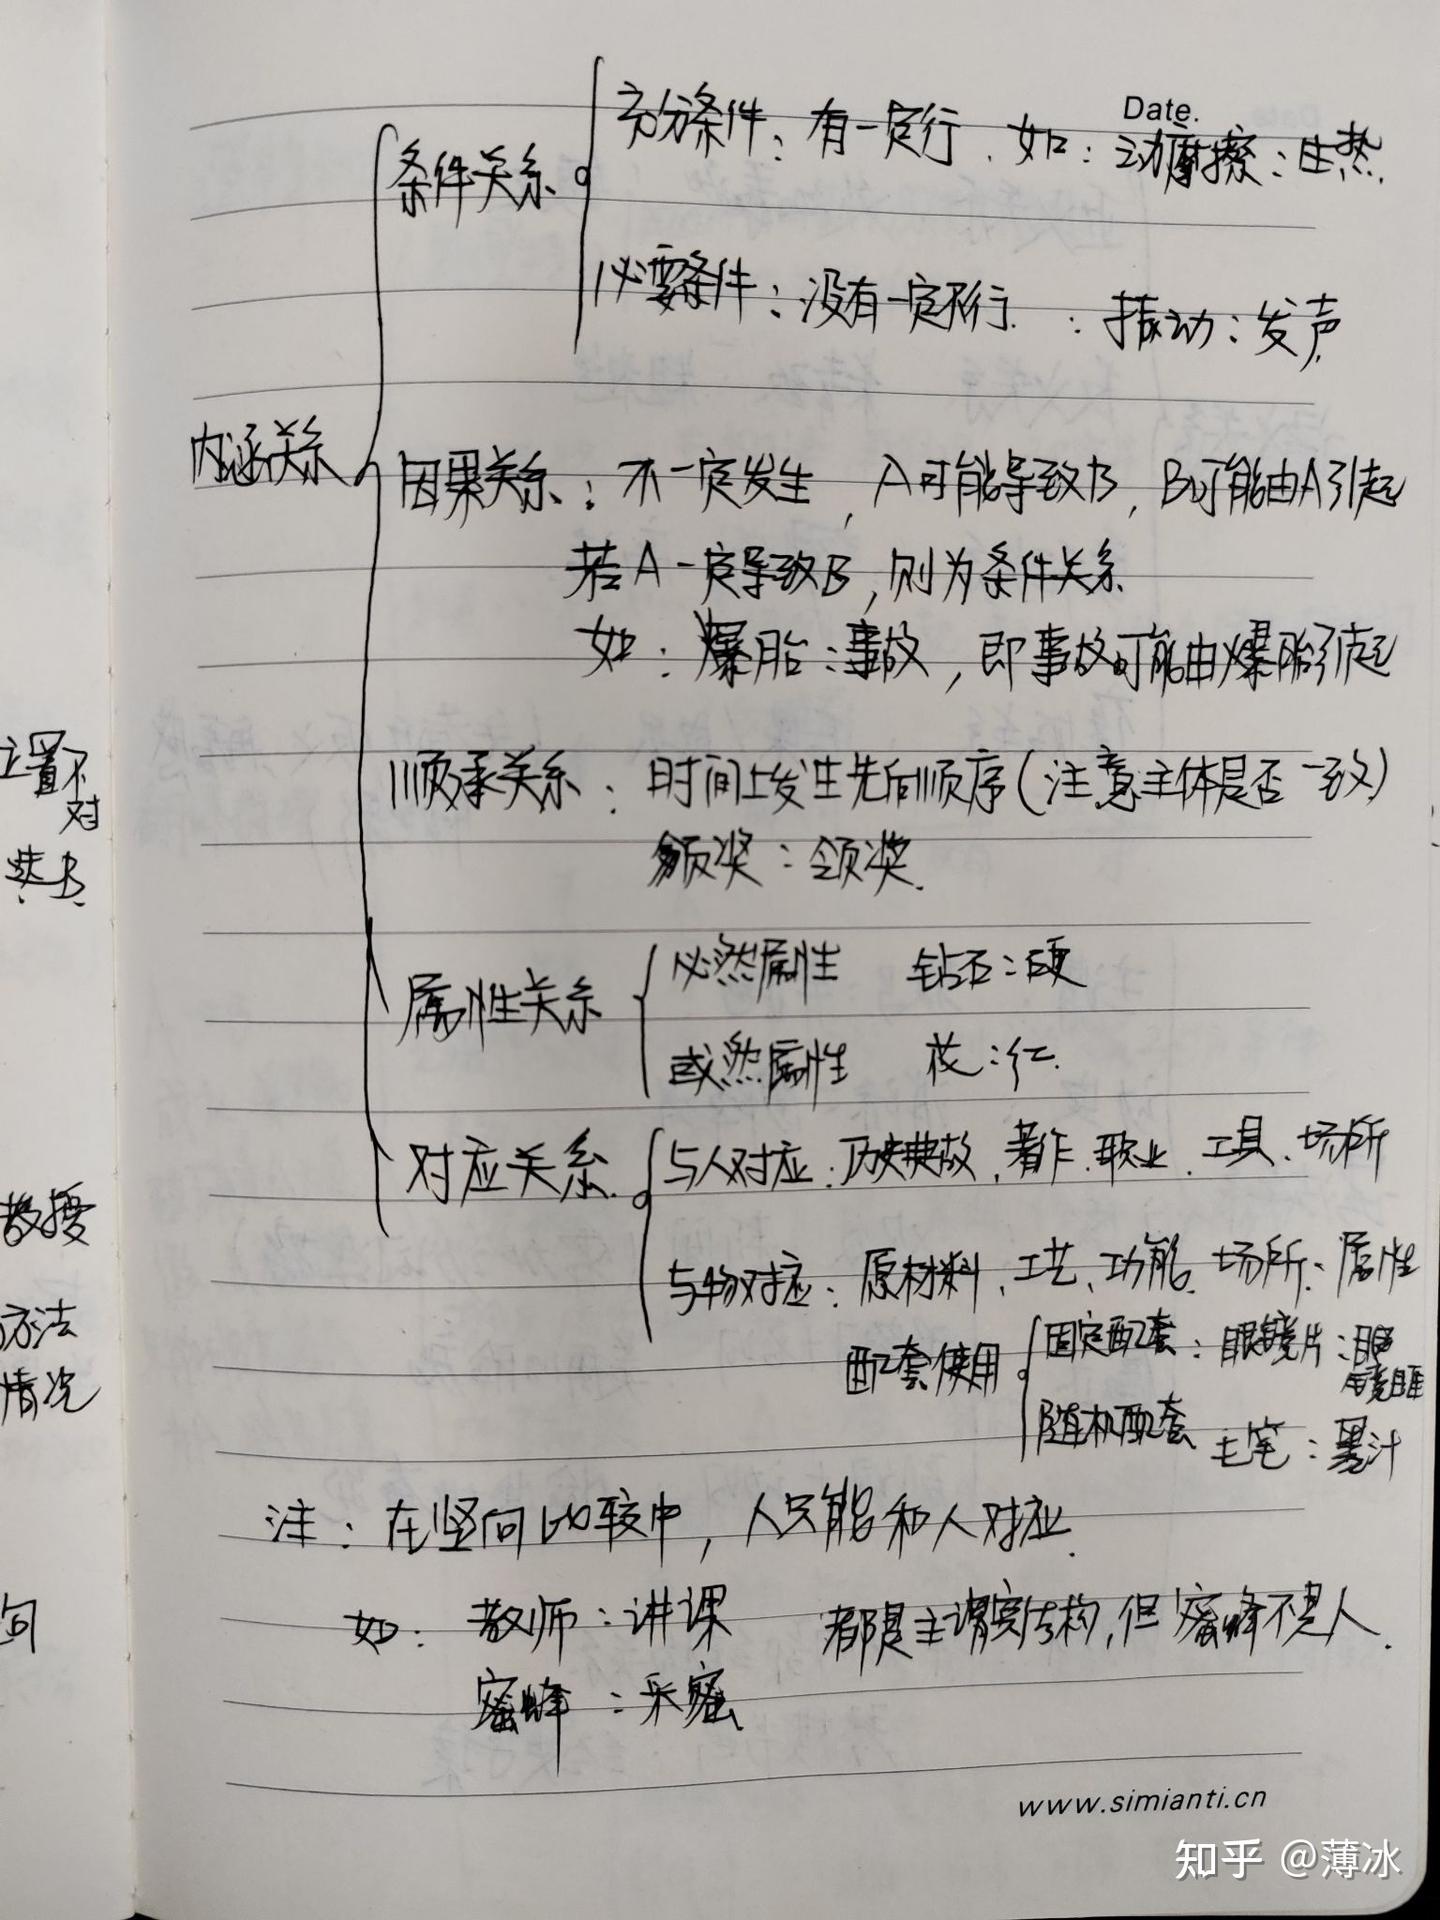 Date.
充分条件：有一定行．如：动摩擦：生热．
条件关系
必要条件：没有一定不行．：振动：发声
内涵关系
因果关系：不一定发生，A可能导致B，B可能由A引起
若A一定导致B，则为条件关系
如：爆胎：事故，即事故可能由爆胎引起
顺承关系：时间上发生先后顺序（注意主体是否一致）
颁奖：领奖．
属性关系
必然属性 钻石：硬
或然属性 花：红．
对应关系．
与人对应：历史典故、著作、职业、工具、场所
与物对应：原材料、工艺、功能、场所、属性
配套使用
固定配套：眼镜片：眼镜框
随机配套 毛笔：墨汁
注：在竖向比较中，人只能和人对应．
如：教师：讲课 都是主谓宾结构，但蜜蜂不是人．
蜜蜂：采蜜
www.simianti.cn
知乎 @薄冰
置不
对
选B．
教授
方法
情况
向